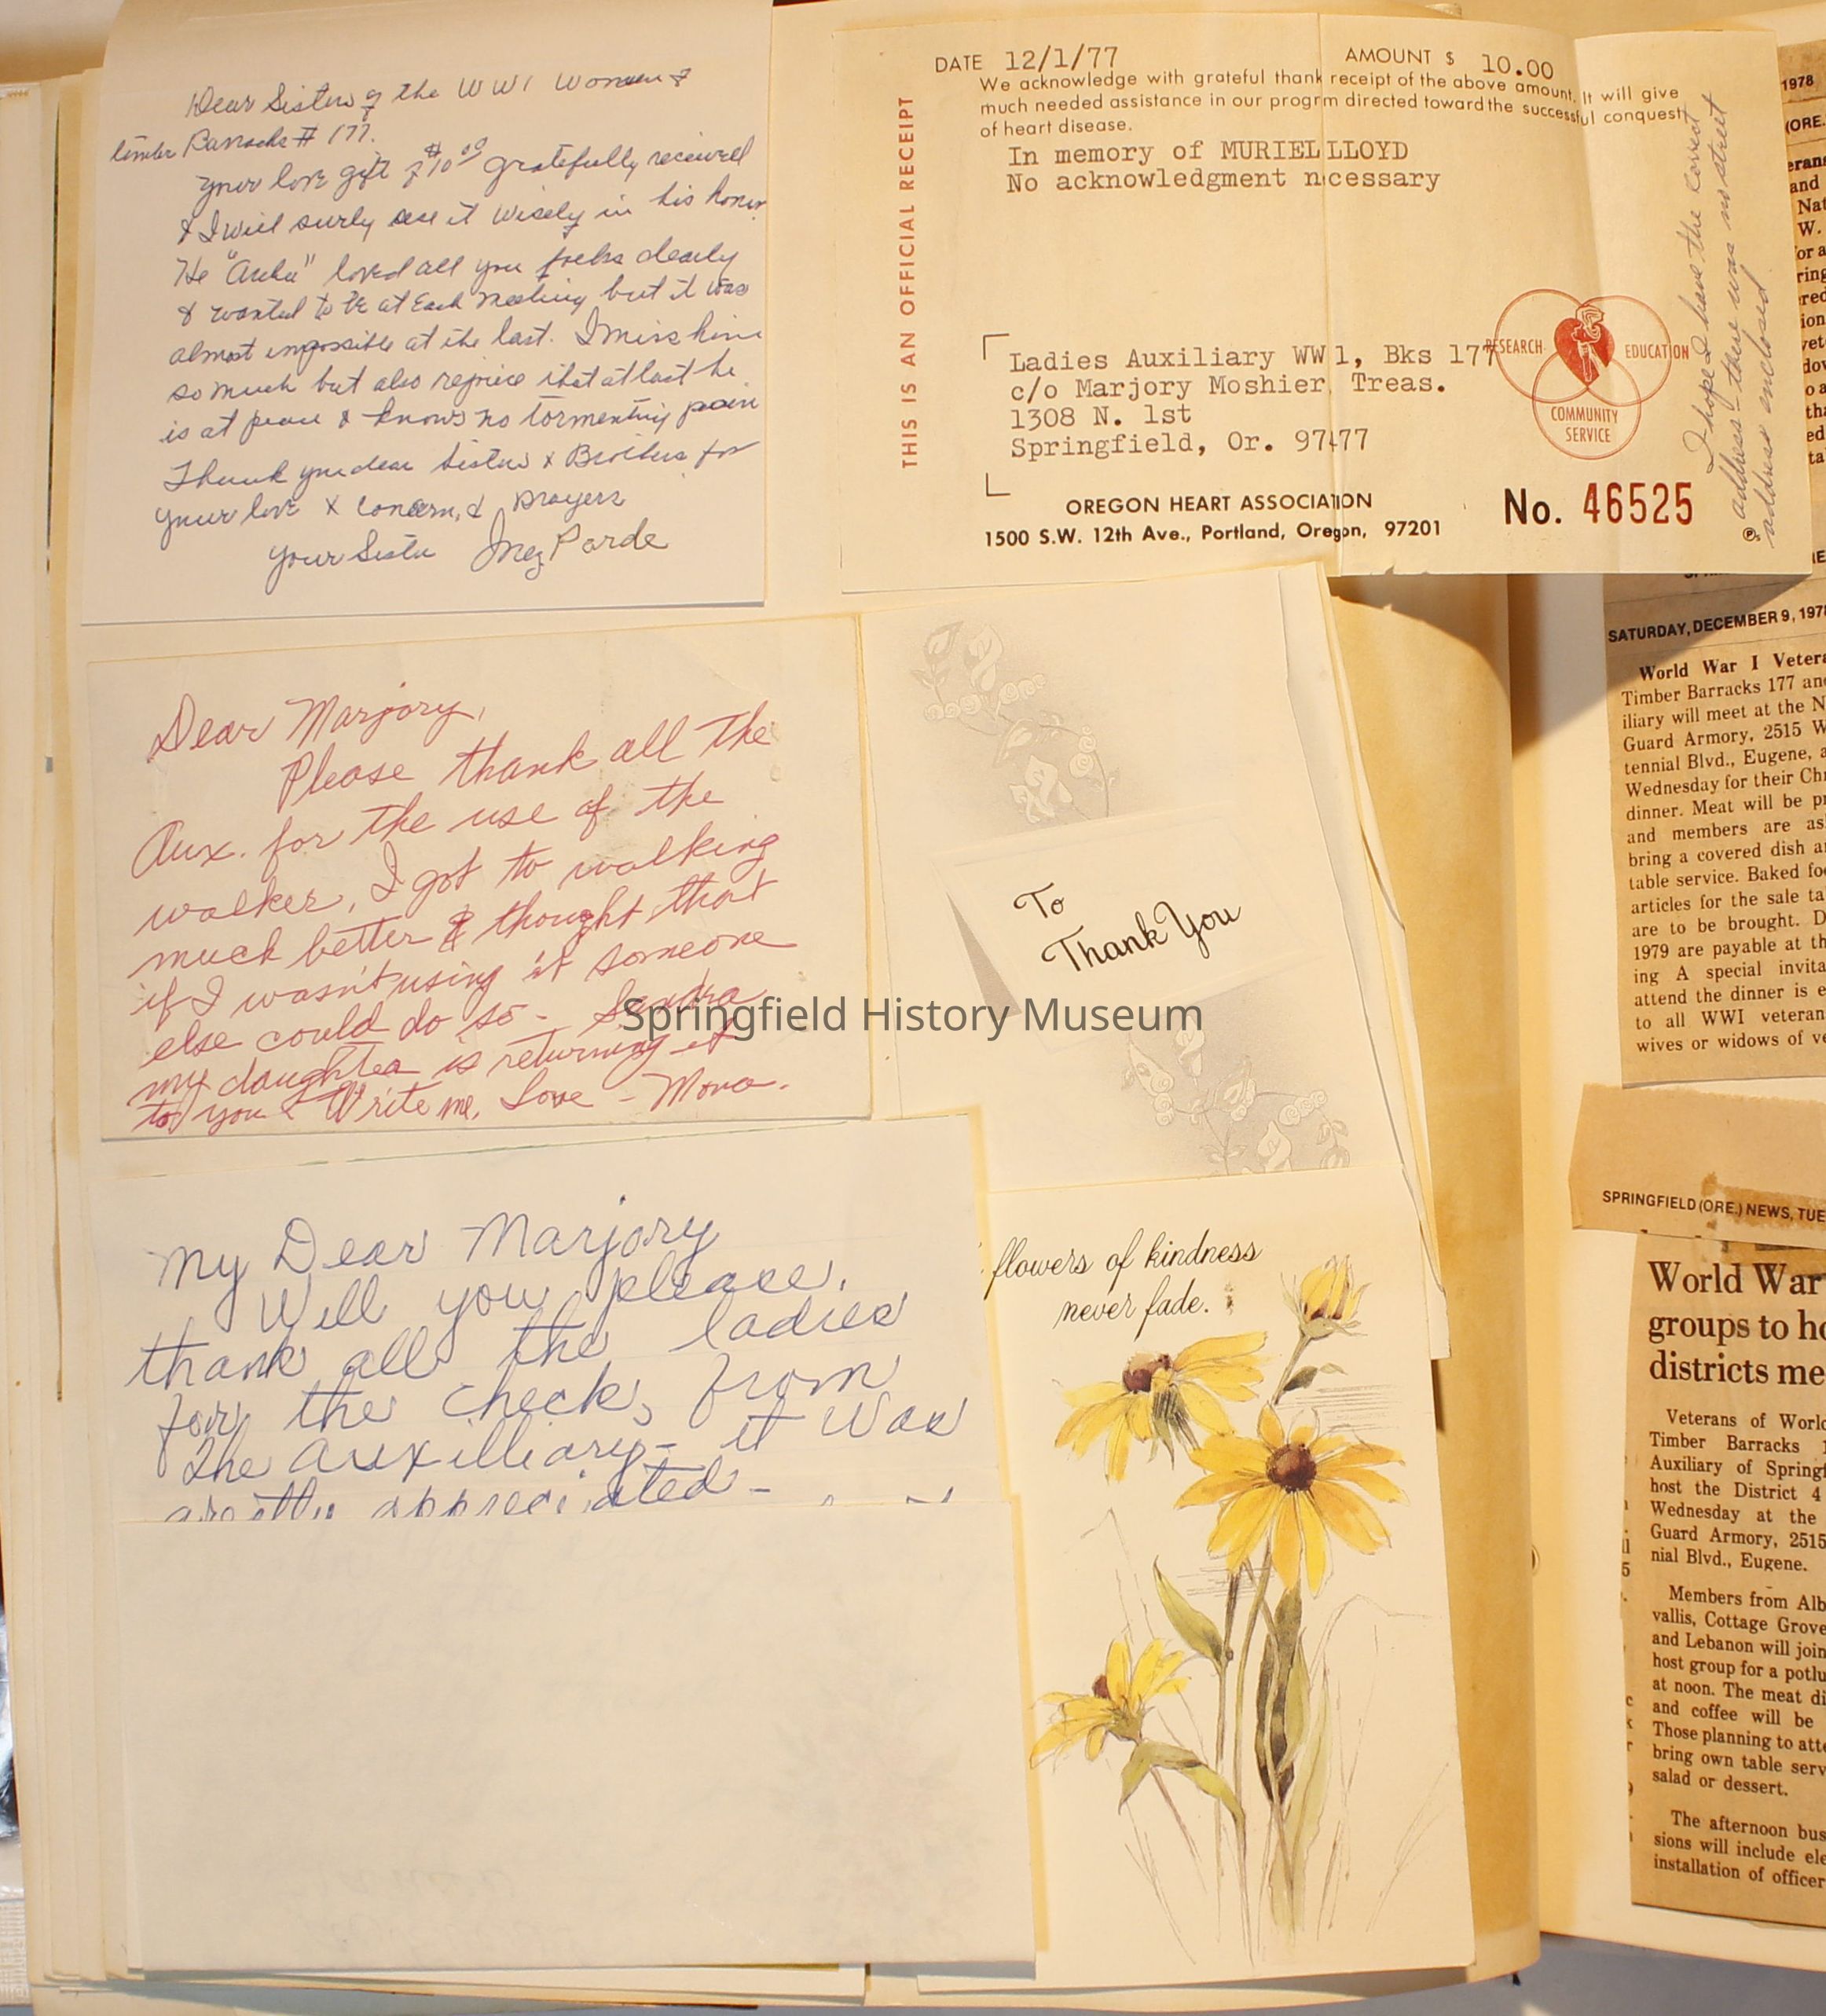 Dear Sisters of the WW1 Women of
timber Barracks # 177.
Your love gift of $10.00 gratefully received
& I will surly use it wisely in his honor
He "Archie" loved all you folks dearly
& wanted to be at Each meeting but it was
almost impossible at the last. I miss him
so much but also rejoice that at last he
is at peace & knows no tormenting pain
Thank you dear Sisters & Brothers for
your love & Concern, & prayers
your Sister Inez Parde
DATE 12/1/77 AMOUNT $ 10.00
We acknowledge with grateful thank receipt of the above amount. It will give
much needed assistance in our progrm directed toward the successful conquest
of heart disease.
In memory of MURIEL LLOYD
No acknowledgment necessary
THIS IS AN OFFICIAL RECEIPT
Ladies Auxiliary WW 1, Bks 177
c/o Marjory Moshier, Treas.
1308 N. 1st
Springfield, Or. 97477
RESEARCH
EDUCATION
COMMUNITY
SERVICE
OREGON HEART ASSOCIATION
1500 S.W. 12th Ave., Portland, Oregon, 97201
No. 46525
I hope I have the correct
address - there was no street
address enclosed
Dear Marjory,
Please thank all the
Aux. for the use of the
walker, I got to walking
much better & thought that
if I wasn't using it someone
else could do so - Sandra
my daughter is returning it
to you & Write me, Love - Mona.
To
Thank You
Springfield History Museum
My Dear Marjory
Will you please,
thank all the ladies
for the check, from
The auxilliary - it was
greatly appreciated -
flowers of kindness
never fade.
1978
(ORE.
SATURDAY, DECEMBER 9, 1978
World War I Vetera
Timber Barracks 177 and
iliary will meet at the N
Guard Armory, 2515 W
tennial Blvd., Eugene, a
Wednesday for their Chr
dinner. Meat will be pr
and members are as
bring a covered dish a
table service. Baked foo
articles for the sale ta
are to be brought. D
1979 are payable at th
ing A special invita
attend the dinner is e
to all WWI veteran
wives or widows of ve
SPRINGFIELD (ORE.) NEWS, TUE
World War
groups to ho
districts me
Veterans of World
Timber Barracks 1
Auxiliary of Springf
host the District 4
Wednesday at the
Guard Armory, 2515
nial Blvd., Eugene.
Members from Alb
vallis, Cottage Grove
and Lebanon will join
host group for a potlu
at noon. The meat di
and coffee will be
Those planning to atte
bring own table serv
salad or dessert.
The afternoon bus
sions will include ele
installation of officer